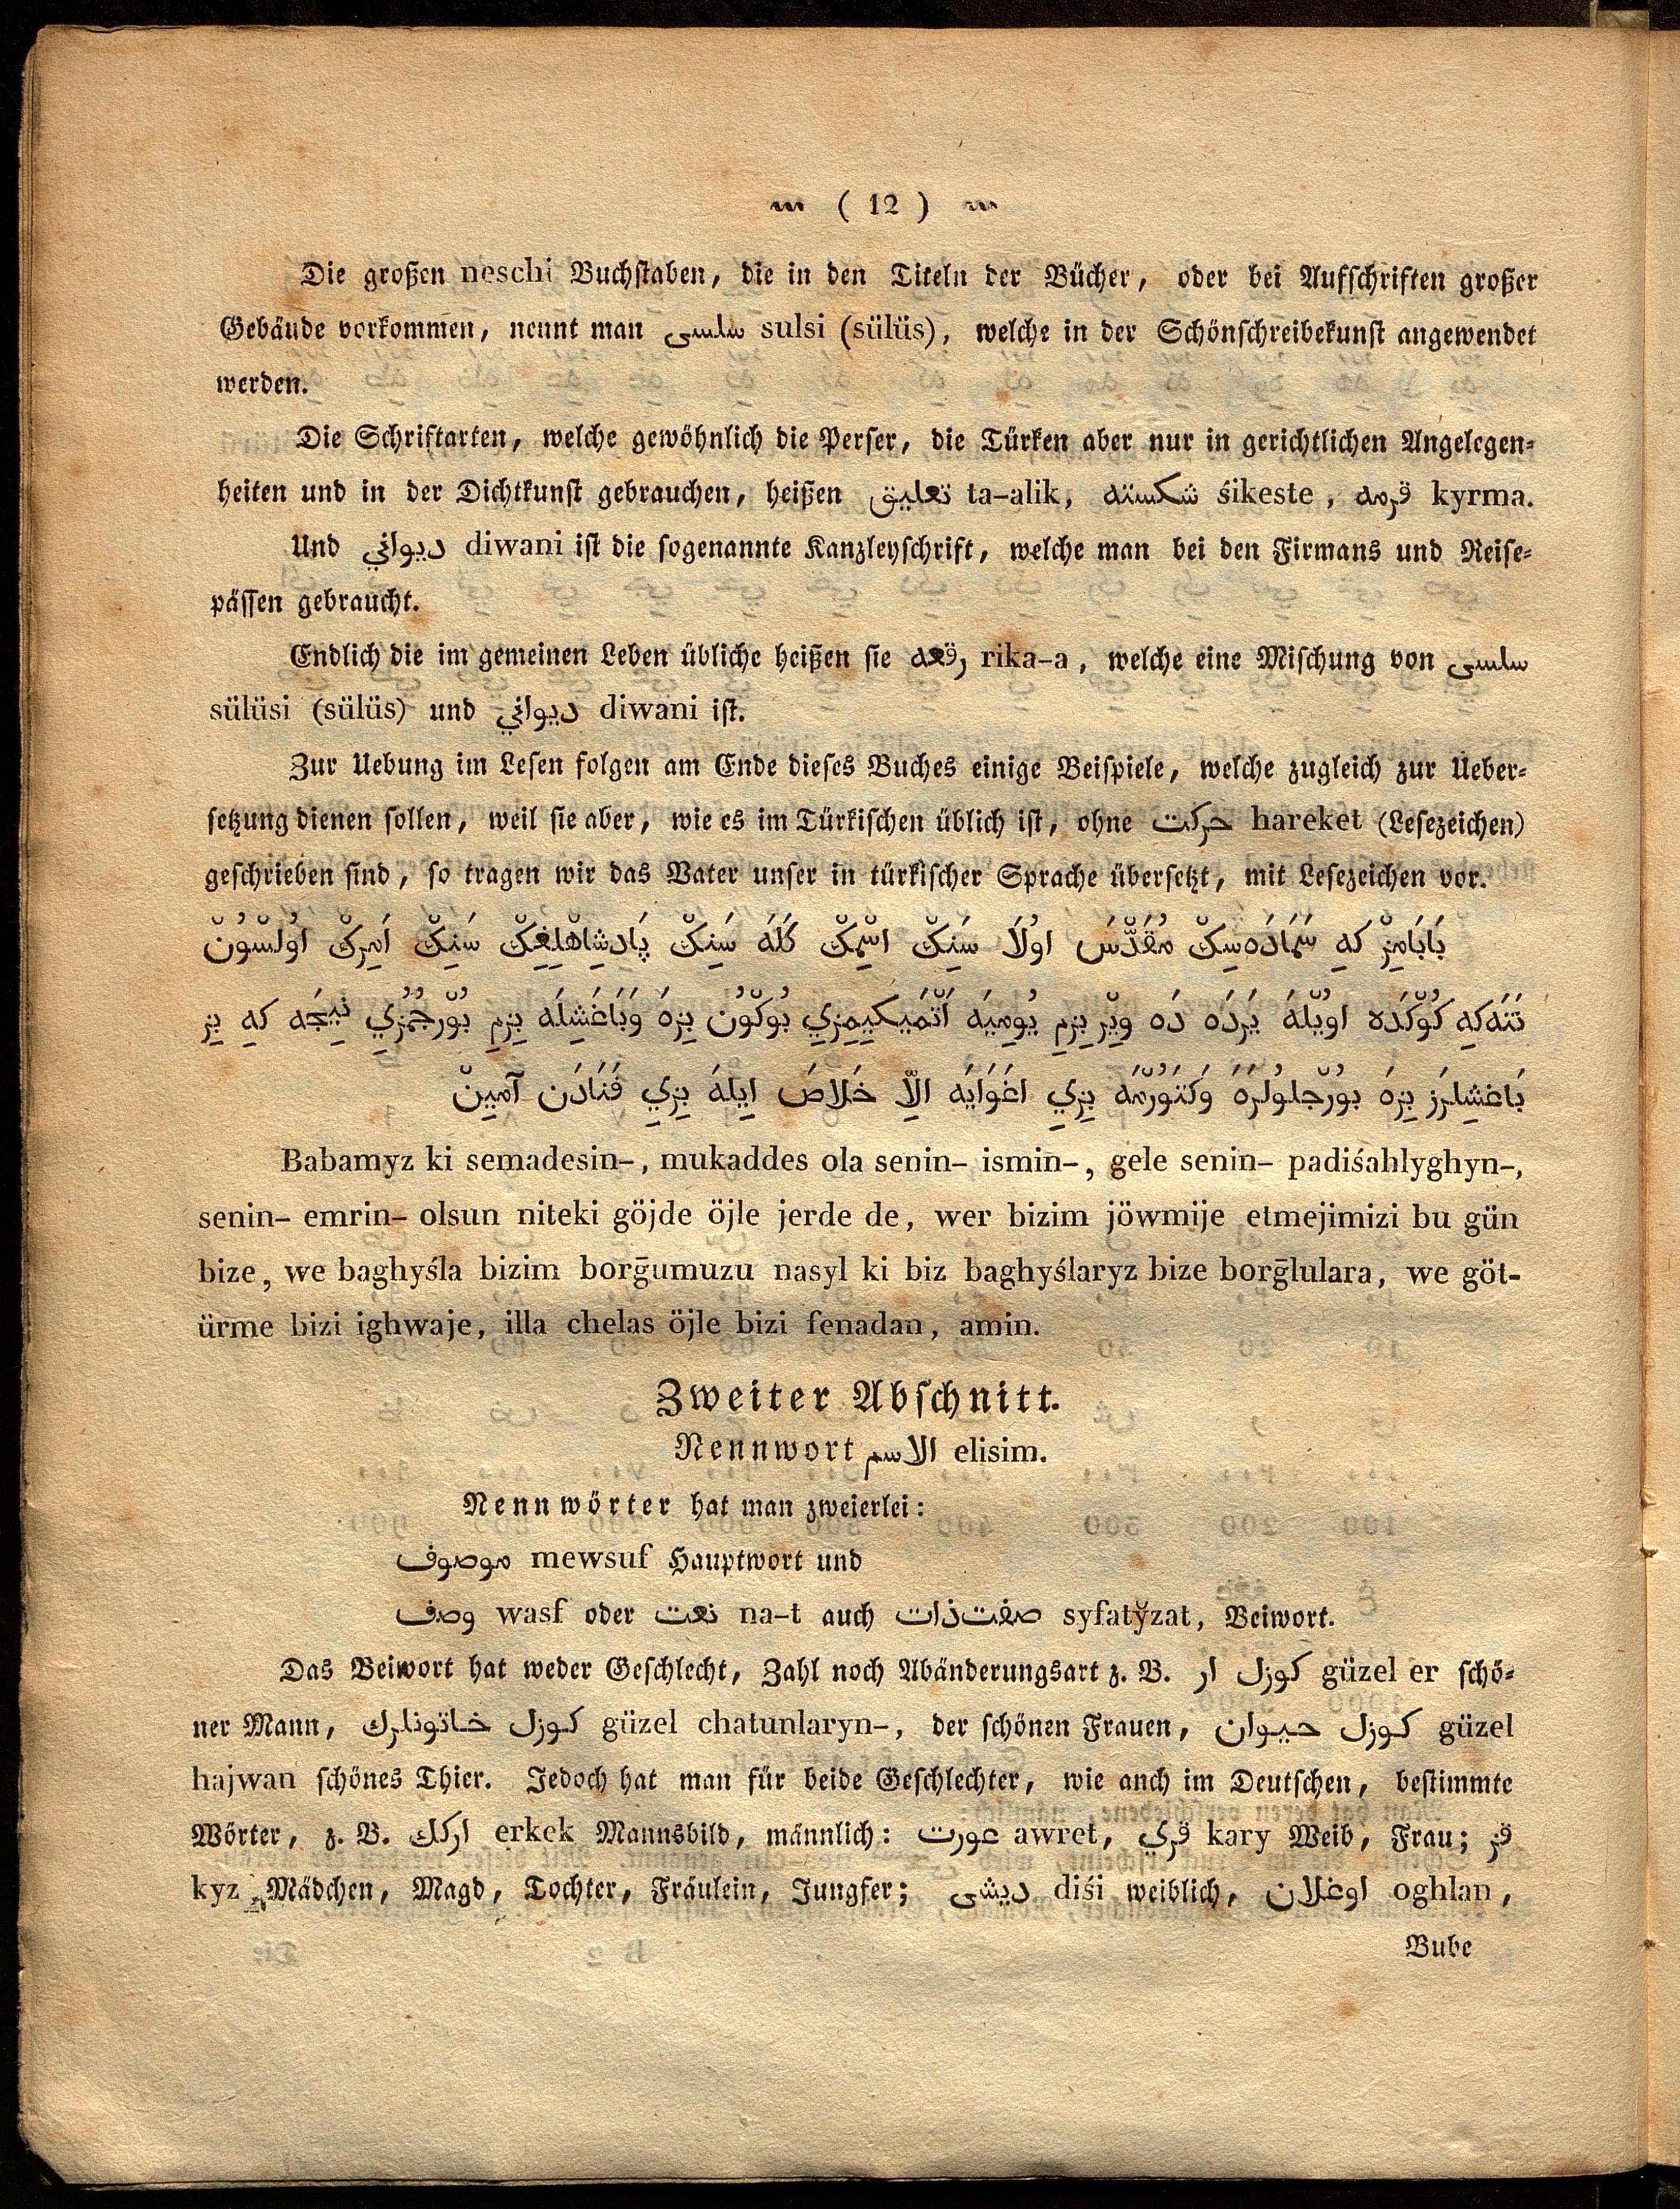 ( 12 )
Die großen neschi Buchstaben, die in den Titeln der Bücher, oder bei Aufschriften großer
Gebäude vorkommen, nennt man سلسى sulsi (sülüs), welche in der Schönschreibekunst angewendet
werden.
Die Schriftarten, welche gewöhnlich die Perser, die Türken aber nur in gerichtlichen Angelegen-
heiten und in der Dichtkunst gebrauchen, heißen تعليق ta-alik, شكسته śikeste, قرمه kyrma.
Und ديواني diwani ist die sogenannte Kanzleyschrift, welche man bei den Firmans und Reise-
pässen gebraucht.
Endlich die im gemeinen Leben übliche heißen sie رقعه rika-a, welche eine Mischung von سلسى
sülüsi (sülüs) und ديواني diwani ist.
Zur Uebung im Lesen folgen am Ende dieses Buches einige Beispiele, welche zugleich zur Ueber-
setzung dienen sollen, weil sie aber, wie es im Türkischen üblich ist, ohne حركت hareket (Lesezeichen)
geschrieben sind, so tragen wir das Vater unser in türkischer Sprache übersetzt, mit Lesezeichen vor.
بَابَامِزْ كهِ سَمَادَهسِكْ مُقَدَّسَ اوُلَا سَنِكْ اسْمِكْ كَلَه سَنِكْ پَادِشَاهْلِغِكْ سَنِكْ اَمِرِكْ اوُلسُونْ
نَتَه‌كهِ كُوْكْدَه اويْلَهَ يَرْدَه دَه وِيْر بِزِمِ يُومِيَه اَتْمَيكِيمِزِي بُوكْوُن بِزَه وَبَاغَشِلَه بِزِمِ بُوْرجُمُزِي نِيجَه كهِ بِز
بَاغَشِلَرِز بِزَه بوُرْجلوُلَرَه وَكَتوُرْمَه بِزِي اغَوَايَه الَّا خَلَاصَ اِيلَهَ بِزِي فَنَادَن آمِيِنْ
Babamyz ki semadesin-, mukaddes ola senin- ismin-, gele senin- padiśahlyghyn-,
senin- emrin- olsun niteki göjde öjle jerde de, wer bizim jöwmije etmejimizi bu gün
bize, we baghyśla bizim borḡumuzu nasyl ki biz baghyślaryz bize borḡlulara, we göt-
ürme bizi ighwaje, illa chelas öjle bizi fenadan, amin.
Zweiter Abschnitt.
Nennwort الاسم elisim.
Nennwörter hat man zweierlei:
موصوف mewsuf Hauptwort und
وصف wasf oder نعت na-t auch صفت ذات syfatyzat, Beiwort.
Das Beiwort hat weder Geschlecht, Zahl noch Abänderungsart z. B. كوزل ار güzel er schö-
ner Mann, كوزل خاتونلرك güzel chatunlaryn-, der schönen Frauen, كوزل حيوان güzel
hajwan schönes Thier. Jedoch hat man für beide Geschlechter, wie auch im Deutschen, bestimmte
Wörter, z. B. اركك erkek Mannsbild, männlich: عورت awret, قري kary Weib, Frau; قز
kyz Mädchen, Magd, Tochter, Fräulein, Jungfer; ديشى diśi weiblich, اوغلان oghlan,
Bube